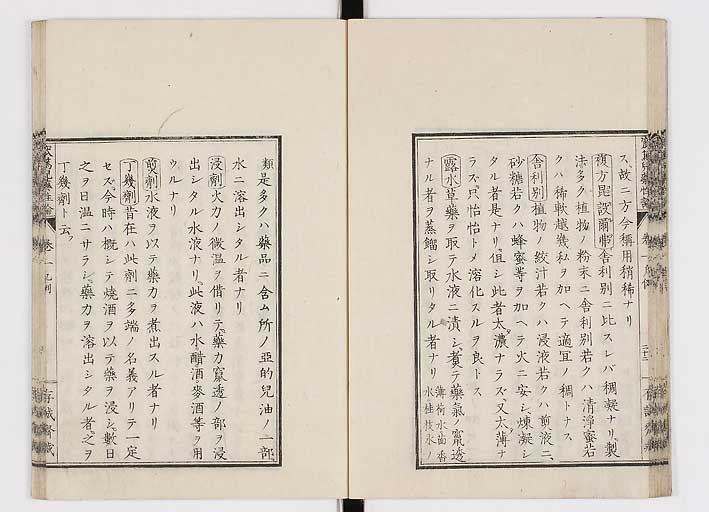 ス、故ニ方今稱用稍稀ナリ
複方昆設爾弗 舍利別ニ比スレバ稠凝ナリ、製
法多ク植物ノ粉末ニ舍利別若クハ清淨蜜若
クハ稀軟越幾私ヲ加ヘテ適宜ノ稠トナス
舍利別 植物ノ絞汁若クハ浸液若クハ煎液ニ、
砂糖若クハ蜂蜜等ヲ加ヘテ火ニ安シ煉凝シ
タル者是ナリ、但シ此者太濃ナラズ、又太薄ナ
ラズ、只怡怡トメ溶化スルヲ良トス
露水 草藥ヲ取テ水液ニ漬シ、煮テ藥氣ノ竄透
ナル者ヲ蒸餾シ取リタル者ナリ 薄荷水茴香
水桂枝水ノ
類是多クハ藥品ニ含ム所ノ亞的兒油ノ一部、
水ニ溶出シタル者ナリ
浸劑 火力ノ微温ヲ借リテ、藥力竄透ノ部ヲ浸
出シタル水液ナリ、此液ハ水醋酒麥酒等ヲ用
ウルナリ
煎劑 水液ヲ以テ藥力ヲ煮出スル者ナリ
丁幾劑 昔在ハ此劑ニ多端ノ名義アリテ一定
セズ、今時ハ概シテ燒酒ヲ以テ藥ヲ浸シ、數日
之ヲ日温ニサラシ、藥力ヲ溶出シタル者、之ヲ
丁幾劑ト云フ